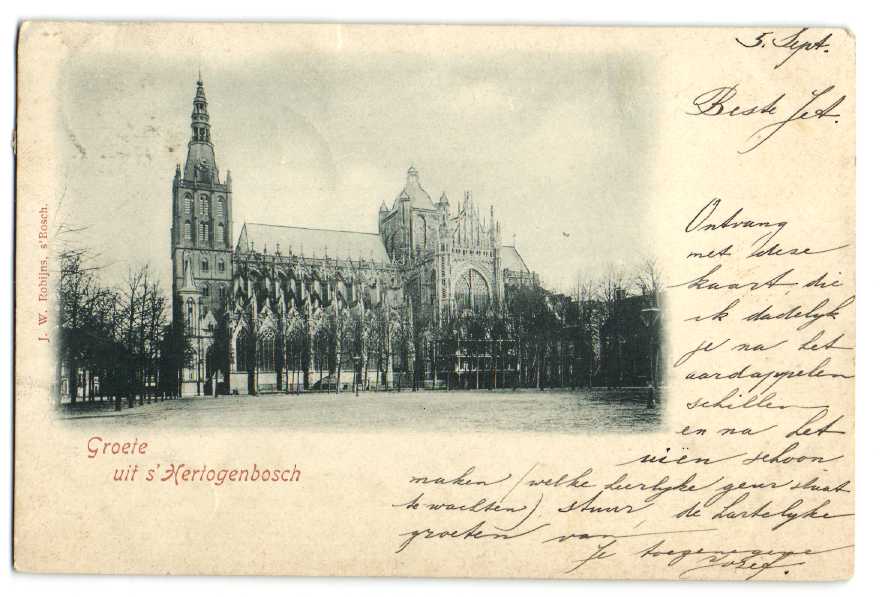 5. Sept.
Beste Jet.
Ontvang
met deze
kaart, die
ik dadelijk
je na het
aardappelen
schillen
en na het
uiën schoon
maken (welke heerlyke geur staat
te wachten) stuur, de hartelyke
groeten van
je toegenegene
Jozef.
J. W. Robijns, s'Bosch.
Groete
uit s'Hertogenbosch